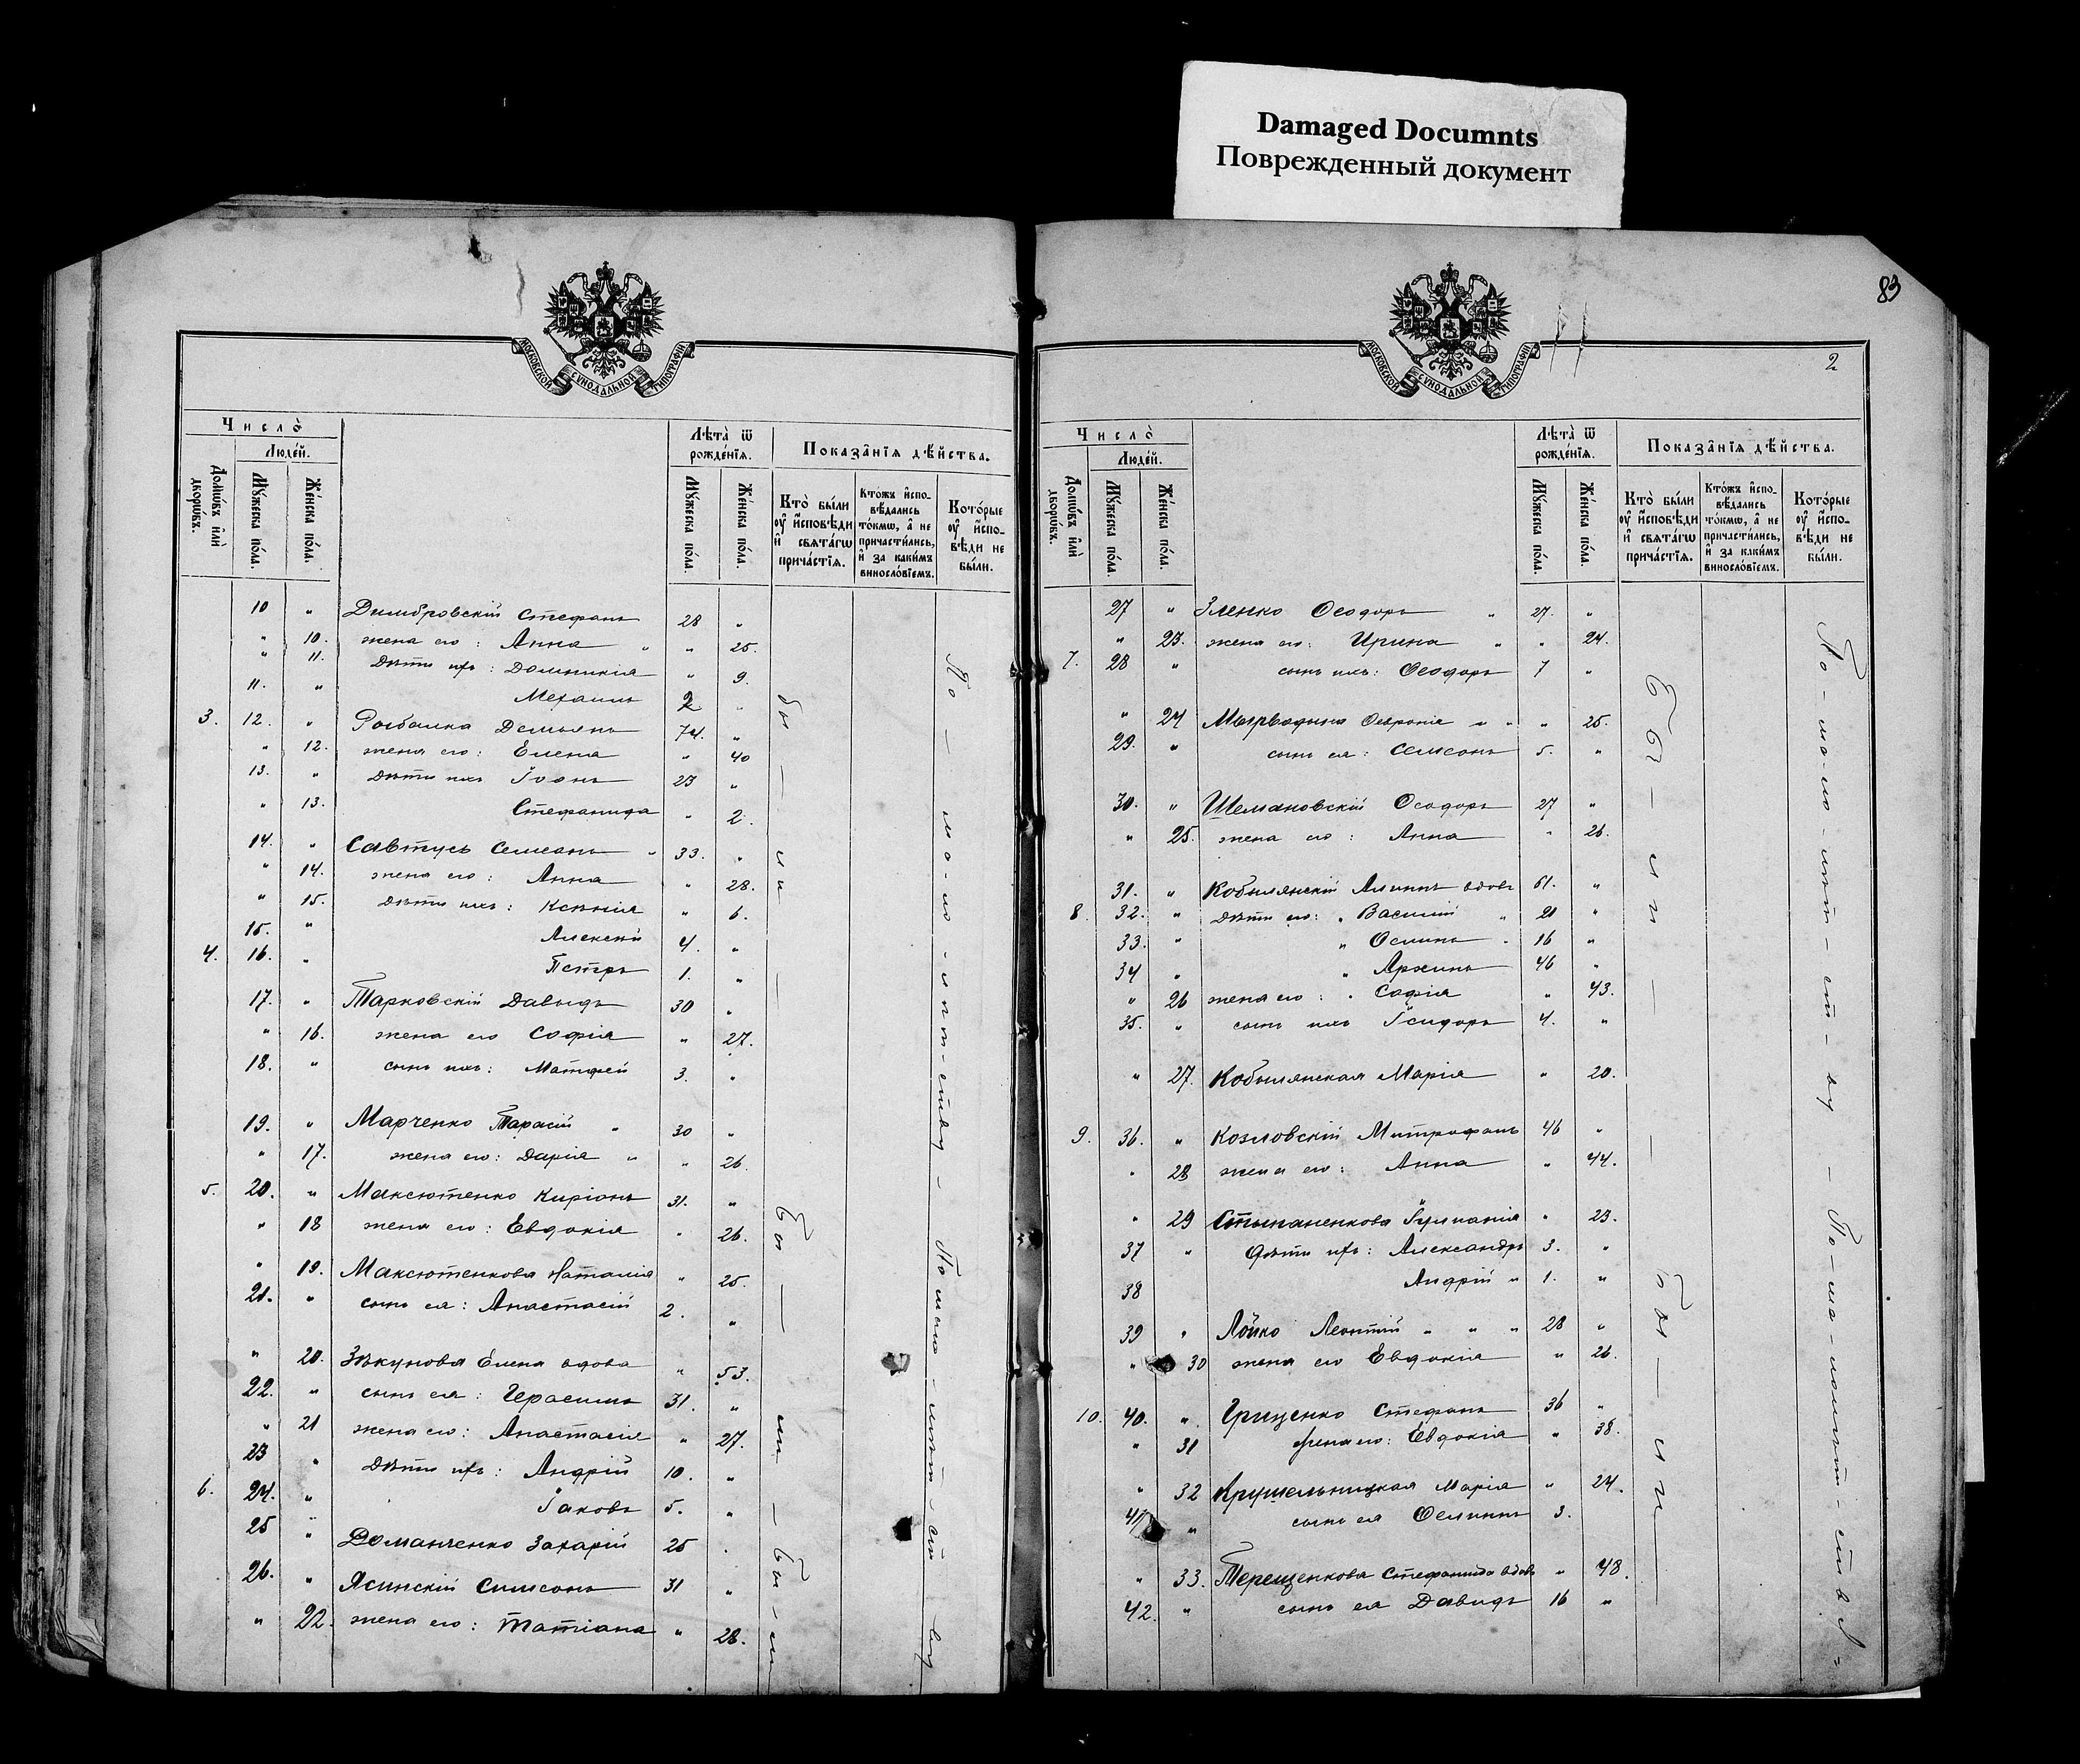 Damaged Documnts
Поврежденный документ
МОСКОВСКОЙ СѴНОДАЛЬНОЙ ТИПОГРАФІИ
Число̀
Людей.
Домѡвъ или дворѡвъ.
Мꙋжеска пола.
Женска пола.
Лѣта ѿ рожденїѧ.
Мꙋжеска пола.
Женска пола.
Показанїѧ дѣйства.
Кто были ᲂу исповѣди и свѧтагѡ причастїѧ.
Ктожъ исповѣдались токмѡ, а не причастились, и за какимъ винословїемъ.
Которые ᲂу исповѣди не были.
10 " Димбровскій Стефанъ 28 "
" 10. жена его: Анна " " 25.
" 11. Дѣти ихъ: Домникія " 9.
11. " Механлъ 2 "
3. 12. " Рыбалка Демьянъ 74. "
" 12. жена его: Елена " 40
13. " Дѣти ихъ Іоанъ 23 "
" 13. Стефанида " 2.
14. " Савтусь Семеонъ " 33. "
" 14. жена его: Анна " 28.
" 15. Дѣти ихъ: Ксенія " 6.
15. " Алексѣй 4. "
4. 16. " Петръ 1. "
17. " Тарковскій Давыдъ 30 "
" 16. жена его Софія " 27.
18. " сынъ ихъ: Матфей 3. "
19. " Марченко Тарасій " 30 "
" 17. жена его: Дарія " " 26.
5. 20. " Максютенко Киріонъ 31. "
" 18 жена его: Евдокія " 26.
" 19. Максютенкова Наталія " 25.
21. " сынъ ея: Анастасій 2. "
" 20. Зѣкунова Елена вдова " 53.
22. " сынъ ея: Герасимъ 31. "
" 21 жена его: Анастасія " 27.
23 " Дѣти ихъ: Андрій 10. "
6. 24. " Іаковъ 5. "
25 " Доманченко Захарій 25 "
26. " Ясинскій Симеонъ 31 "
" 22. жена его: Татіана " 28.
бы — ли — Бы — ли — Бы - ли
По — ма-ло - лѣт-ству - По мало - лѣт - ст - ву
83
2
МОСКОВСКОЙ СѴНОДАЛЬНОЙ ТИПОГРАФІИ
Число̀
Людей.
Домѡвъ или дворѡвъ.
Мꙋжеска пола.
Женска пола.
Лѣта ѿ рожденїѧ.
Мꙋжеска пола.
Женска пола.
Показанїѧ дѣйства.
Кто были ᲂу исповѣди и свѧтагѡ причастїѧ.
Ктожъ исповѣдались токмѡ, а не причастились, и за какимъ винословїемъ.
Которые ᲂу исповѣди не были.
27 " Зленко Ѳеодоръ " 27. "
" 23. жена его: Ирина " " 24.
7. 28 " сынъ ихъ: Ѳеодоръ 1 "
" 24 Ѳевронія " " " 25.
29. " сынъ ея: Семеонъ 5. "
30. " Шемановскій Ѳеодоръ 27 "
" 25. жена его: Анна " 26.
31. " Кобылянскій вдовъ 61. "
8. 32. " Дѣти его: " Василій " 21 "
33. " " Ѳеминъ " 16 "
34 " " Архипъ 46 "
" 26 жена его: " Софія " 43.
35. " сынъ ихъ Ісидоръ 4. "
" 27. Кобылянская Марія " 20.
9. 36. " Козловскій Митрофанъ 46 "
" 28 жена его: Анна " 44.
" 29 Стыпаненкова Іуліанія " 23.
37 " Дѣти ихъ: Александръ 3. "
38 Андрій " 1. "
39 " Лойко Леонтій " " " 28 "
" 30 жена его Евдокія " 26.
10. 40. " Гриценко Стефанъ 36 "
" 31 жена его: Евдокія " 38.
" 32 Крушельницкая Марія " 24.
41 " сынъ ея 3.
" 33. Терещенкова Стефанида вдов " 48.
42. " сынъ ея Давидъ 16 "
Бы — ли — — Бы — ли —
По - ма-ло - лѣт - ст - ву - По - ма - лолѣт - ству =